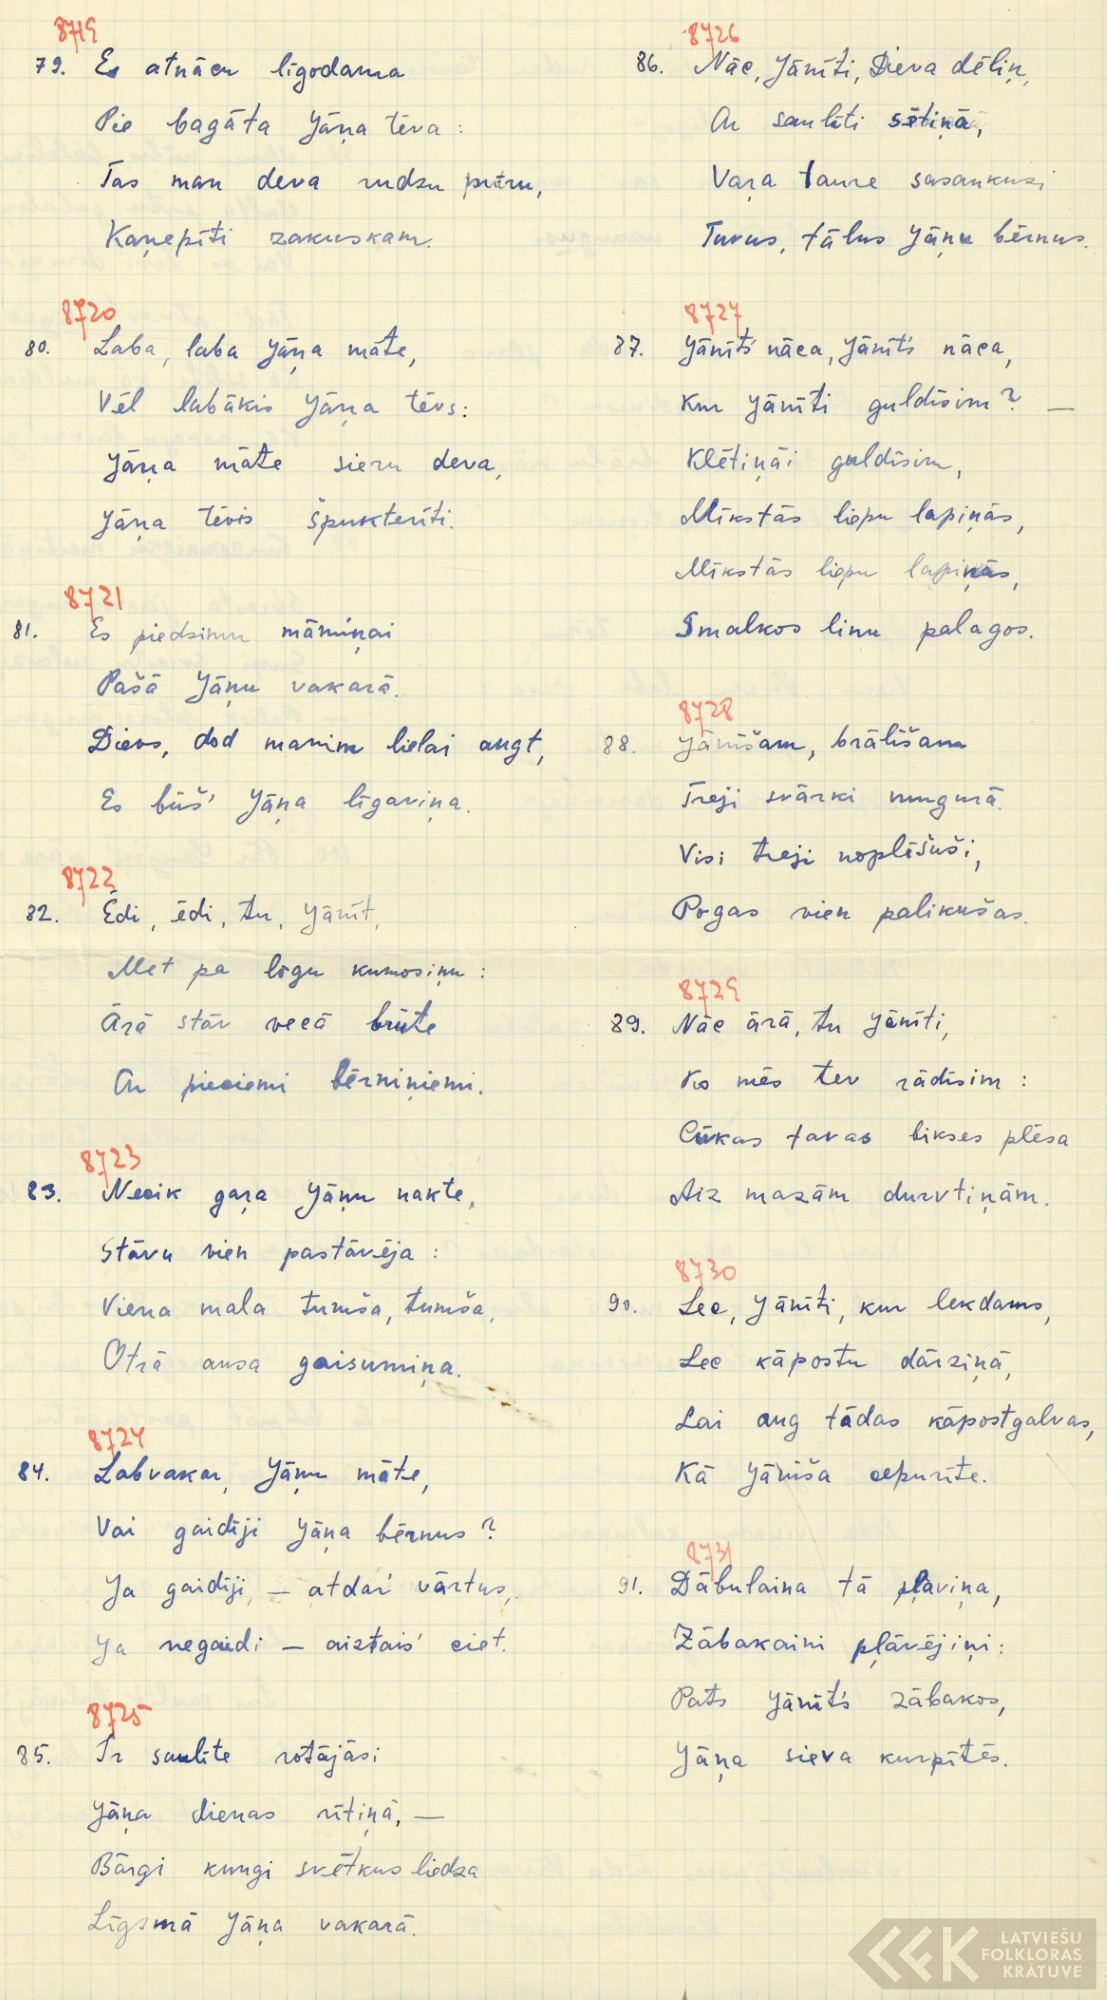 8719
79. Es atnācu līgodama
Pie bagāta Jāņa tēva:
Tas man deva rudzu putru,
Kaņepīti zakuskam.
8720
80. Laba, laba Jāņa māte,
Vēl labākis Jāņa tēvs:
Jāņa māte sieru deva,
Jāņa tēvis špukterīti.
8721
81. Es piedzimu māmiņai
Pašā Jāņu vakarā.
Dievs, dod manim lielai augt,
Es būš' Jāņa līgaviņa.
8722
82. Ēdi, ēdi, tu, Jānīt,
Met pa logu kumosiņu:
Ārā stāv vecā brūte
Ar pieciemi bērniņiemi.
8723
83. Necik gaŗa Jāņu nakte,
Stāvu vien pastāvēja:
Viena mala tumša, tumša,
Otrā ausa gaisumiņa.
8724
84. Labvakar, Jāņu māte,
Vai gaidīji Jāņa bērnus?
Ja gaidīji – atdar' vārtus,
Ja negaidi – aiztais' ciet.
8725
85. Ir saulīte rotājāsi
Jāņa dienas rītiņā, –
Bārgi kungi svētkus liedza
Līgsmā Jāņa vakarā.
8726
86. Nāc, Jānīti, Dieva dēliņ,
Ar saulīti sētiņā,
Vaŗa taure sasaukusi
Tuvus, tālus Jāņu bērnus.
8727
87. Jānīts nāca, Jānīts nāca,
Kur Jānīti guldīsim? –
Klētiņāi guldīsim,
Mīkstās liepu lapiņās,
Mīkstās liepu lapiņās,
Smalkos linu palagos.
8728
88. Jānīšam, brālīšam
Treji svārki mugurā.
Visi treji noplēšuši,
Pogas vien palikušas.
8729
89. Nāc ārā, tu Jānīti,
Ko mēs tev rādīsim:
Cūkas tavas bikses plēsa
Aiz mazām durvtiņām.
8730
90. Lec, Jānīti, kur lekdams,
Lec kāpostu dārziņā,
Lai aug tādas kāpostgalvas,
Kā Jānīša cepurīte.
8731
91. Dābulaina tā pļaviņa,
Zābakaini pļāvējiņi:
Pats Jānīts zābakos,
Jāņa sieva kurpītēs.
LATVIEŠU
FOLKLORAS
KRĀTUVE